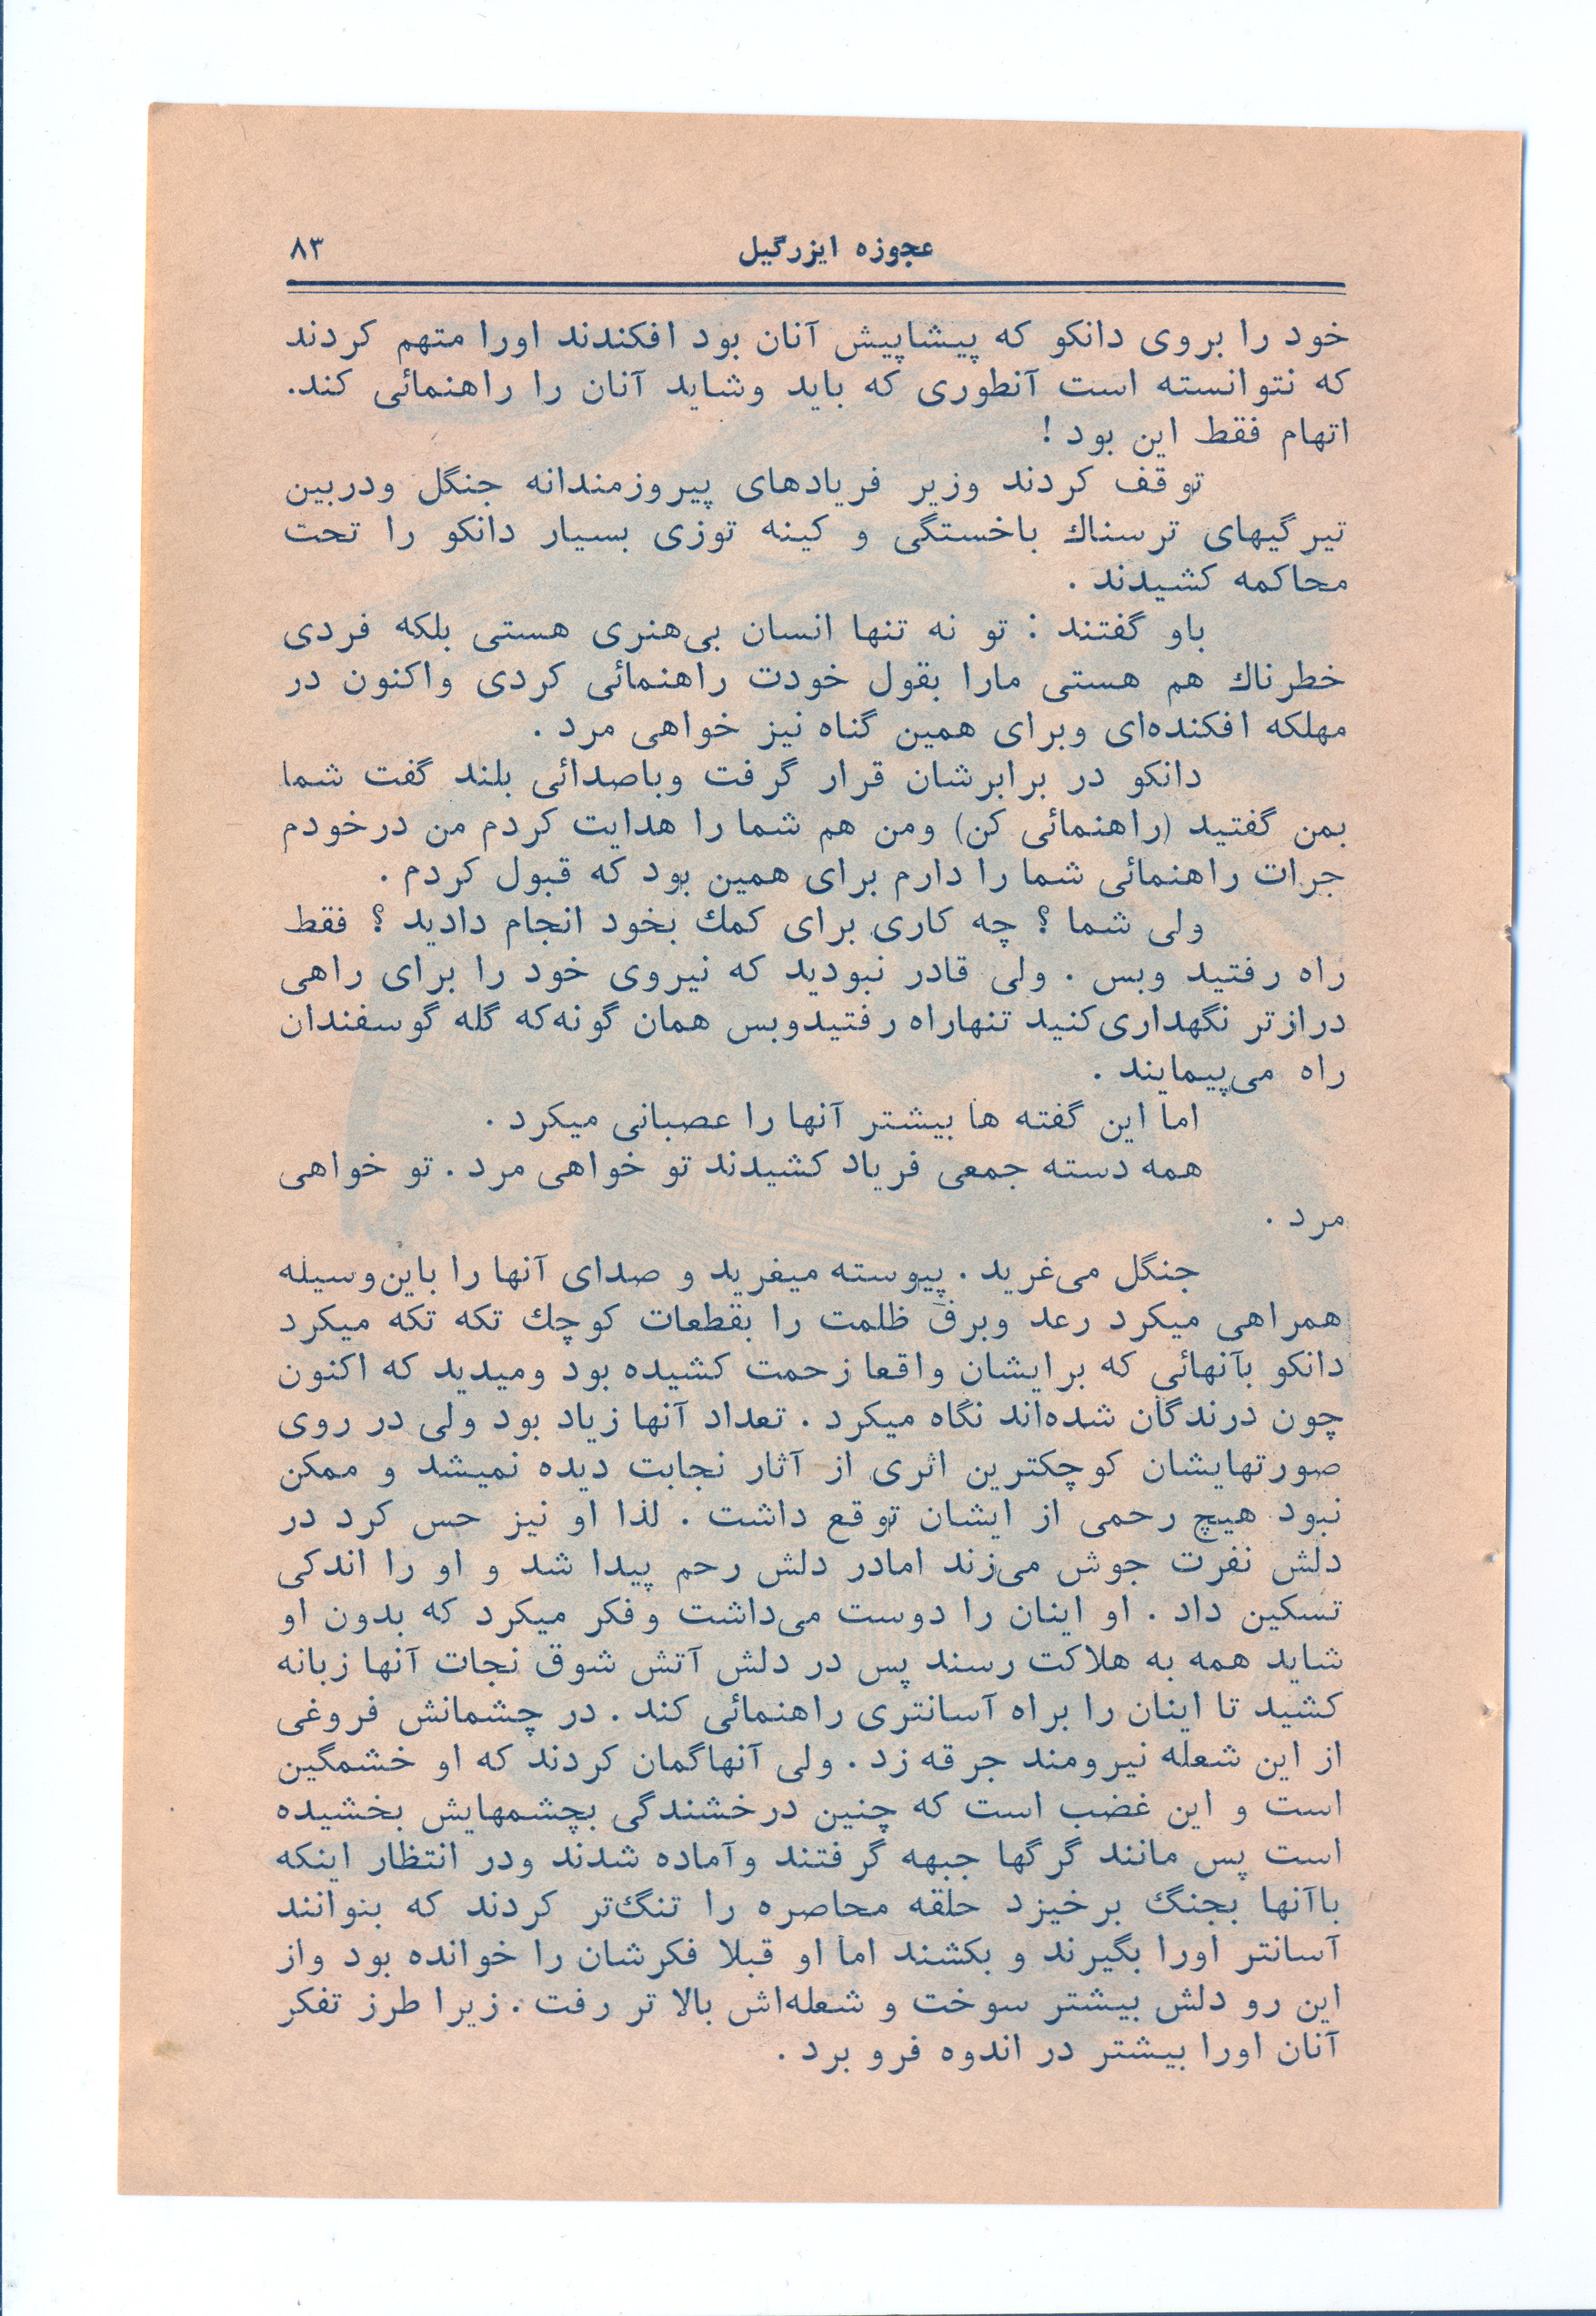 عجوزه ایزرگیل
۸۳
خود را بروی دانکو که پیشاپیش آنان بود افکندند اورا متهم کردند
که نتوانسته است آنطوری که باید وشاید آنان را راهنمائی کند.
اتهام فقط این بود !
توقف کردند وزیر فریادهای پیروزمندانه جنگل ودربین
تیرگیهای ترسناك باخستگی و کینه توزی بسیار دانکو را تحت
محاکمه کشیدند .
باو گفتند : تو نه تنها انسان بی‌هنری هستی بلکه فردی
خطرناك هم هستی مارا بقول خودت راهنمائی کردی واکنون در
مهلکه افکنده‌ای وبرای همین گناه نیز خواهی مرد .
دانکو در برابرشان قرار گرفت وباصدائی بلند گفت شما
بمن گفتید (راهنمائی کن) ومن هم شما را هدایت کردم من درخودم
جرات راهنمائی شما را دارم برای همین بود که قبول کردم .
ولی شما ؟ چه کاری برای کمك بخود انجام دادید ؟ فقط
راه رفتید وبس . ولی قادر نبودید که نیروی خود را برای راهی
درازتر نگهداری‌کنید تنهاراه رفتیدوبس همان گونه‌که گله گوسفندان
راه می‌پیمایند .
اما این گفته ها بیشتر آنها را عصبانی میکرد .
همه دسته جمعی فریاد کشیدند تو خواهی مرد . تو خواهی
مرد .
جنگل می‌غرید . پیوسته میفرید و صدای آنها را باین‌وسیله
همراهی میکرد رعد وبرق ظلمت را بقطعات کوچك تکه تکه میکرد
دانکو بآنهائی که برایشان واقعا زحمت کشیده بود ومیدید که اکنون
چون درندگان شده‌اند نگاه میکرد . تعداد آنها زیاد بود ولی در روی
صورتهایشان کوچکترین اثری از آثار نجابت دیده نمیشد و ممکن
نبود هیچ رحمی از ایشان توقع داشت . لذا او نیز حس کرد در
دلش نفرت جوش می‌زند امادر دلش رحم پیدا شد و او را اندکی
تسکین داد . او اینان را دوست می‌داشت وفکر میکرد که بدون او
شاید همه به هلاکت رسند پس در دلش آتش شوق نجات آنها زبانه
کشید تا اینان را براه آسانتری راهنمائی کند . در چشمانش فروغی
از این شعله نیرومند جرقه زد . ولی آنهاگمان کردند که او خشمگین
است و این غضب است که چنین درخشندگی بچشمهایش بخشیده
است پس مانند گرگها جبهه گرفتند وآماده شدند ودر انتظار اینکه
باآنها بجنگ برخیزد حلقه محاصره را تنگ‌تر کردند که بنوانند
آسانتر اورا بگیرند و بکشند اما او قبلا فکرشان را خوانده بود واز
این رو دلش بیشتر سوخت و شعله‌اش بالا تر رفت . زیرا طرز تفکر
آنان اورا بیشتر در اندوه فرو برد .